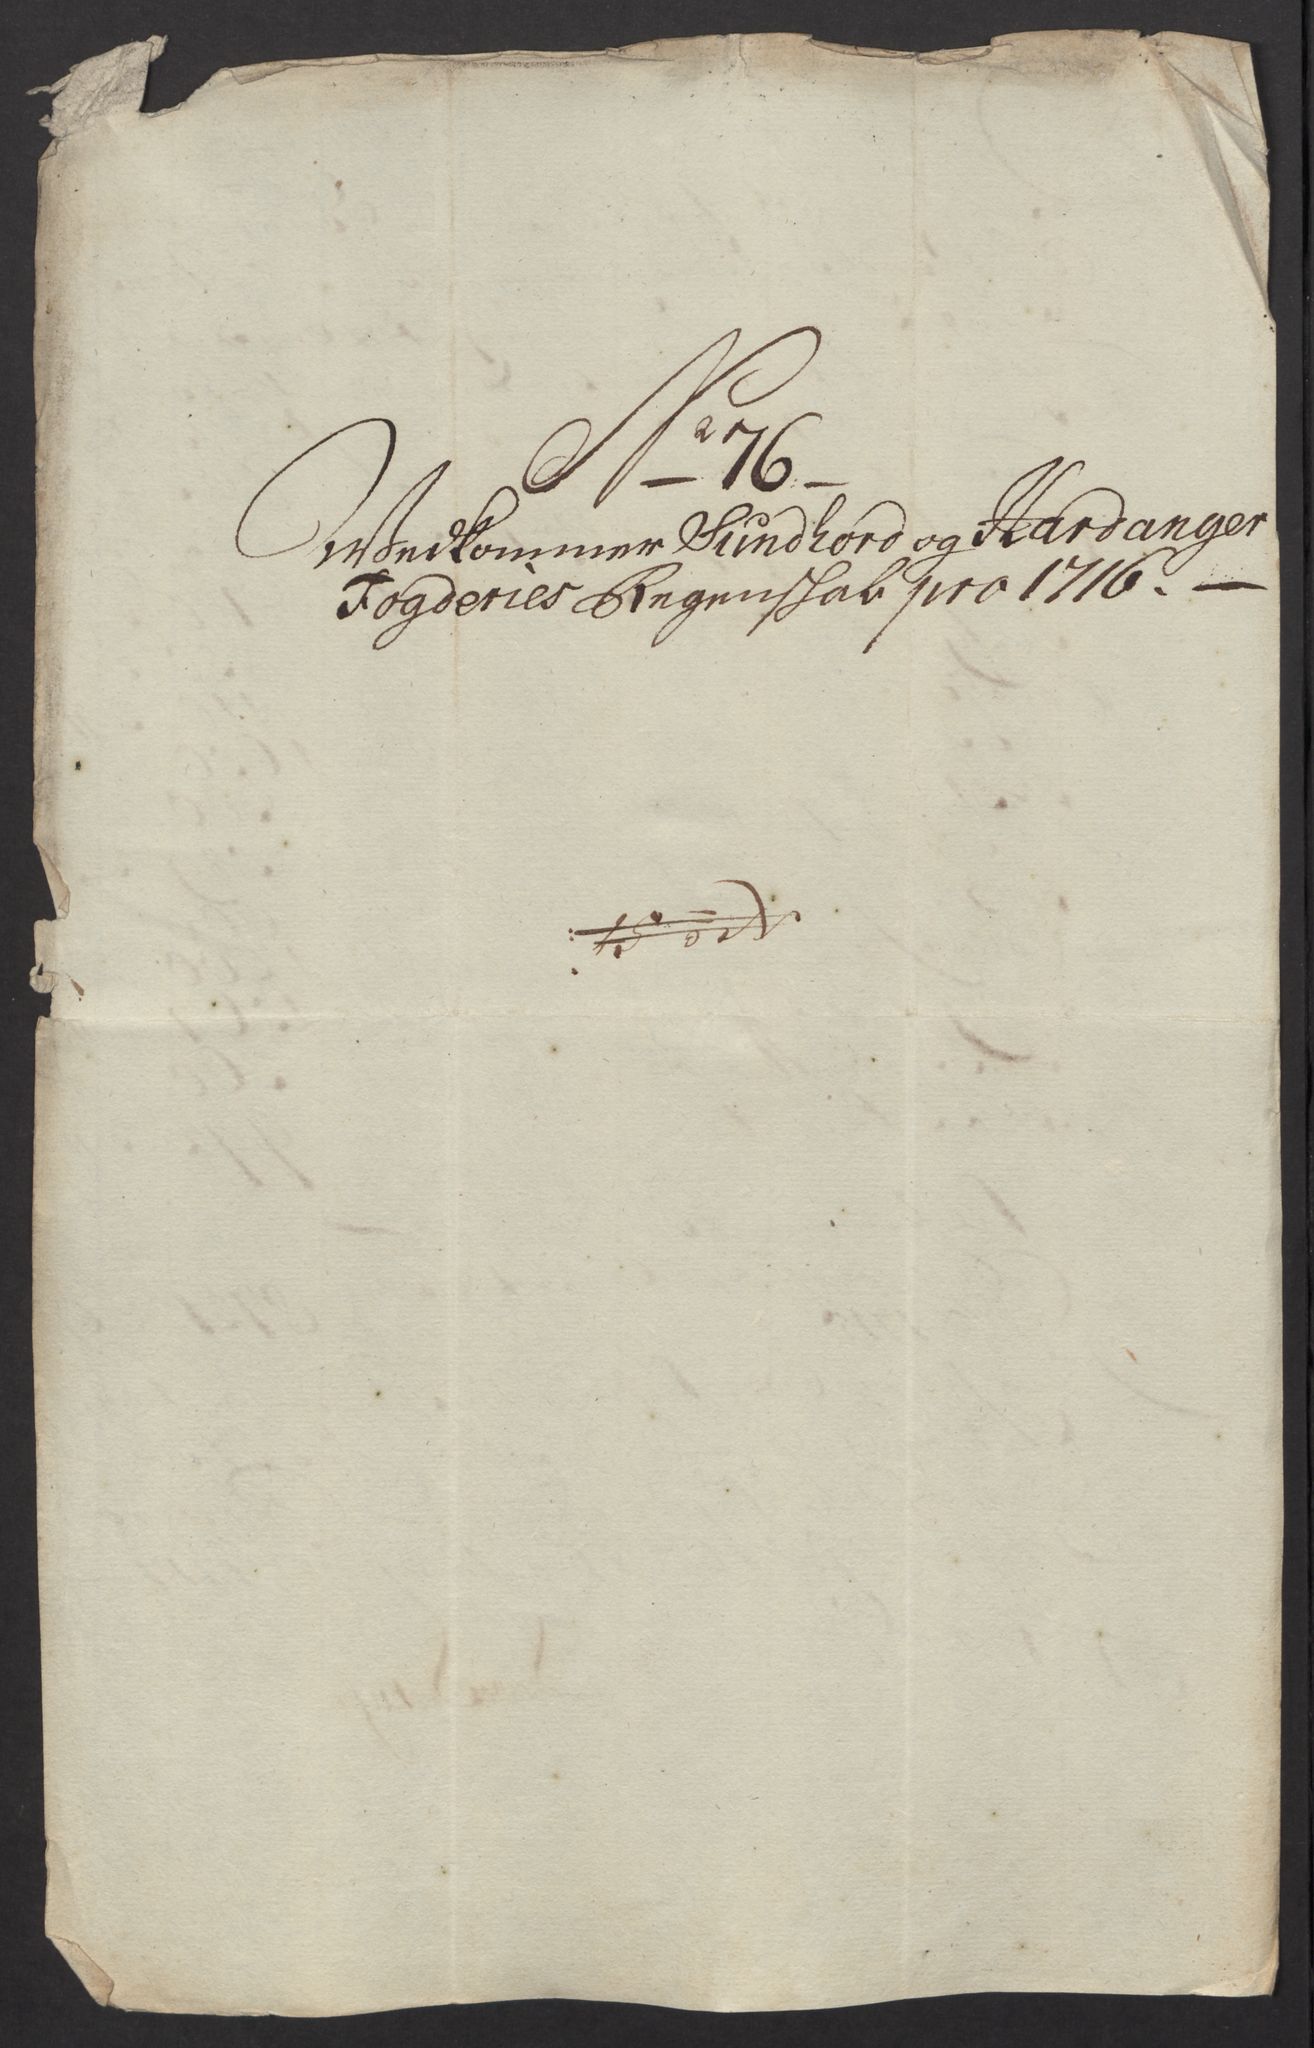 No 76
Wedkommer Sundhord og Hardanger
Fogderies Regenskab pro 1716.